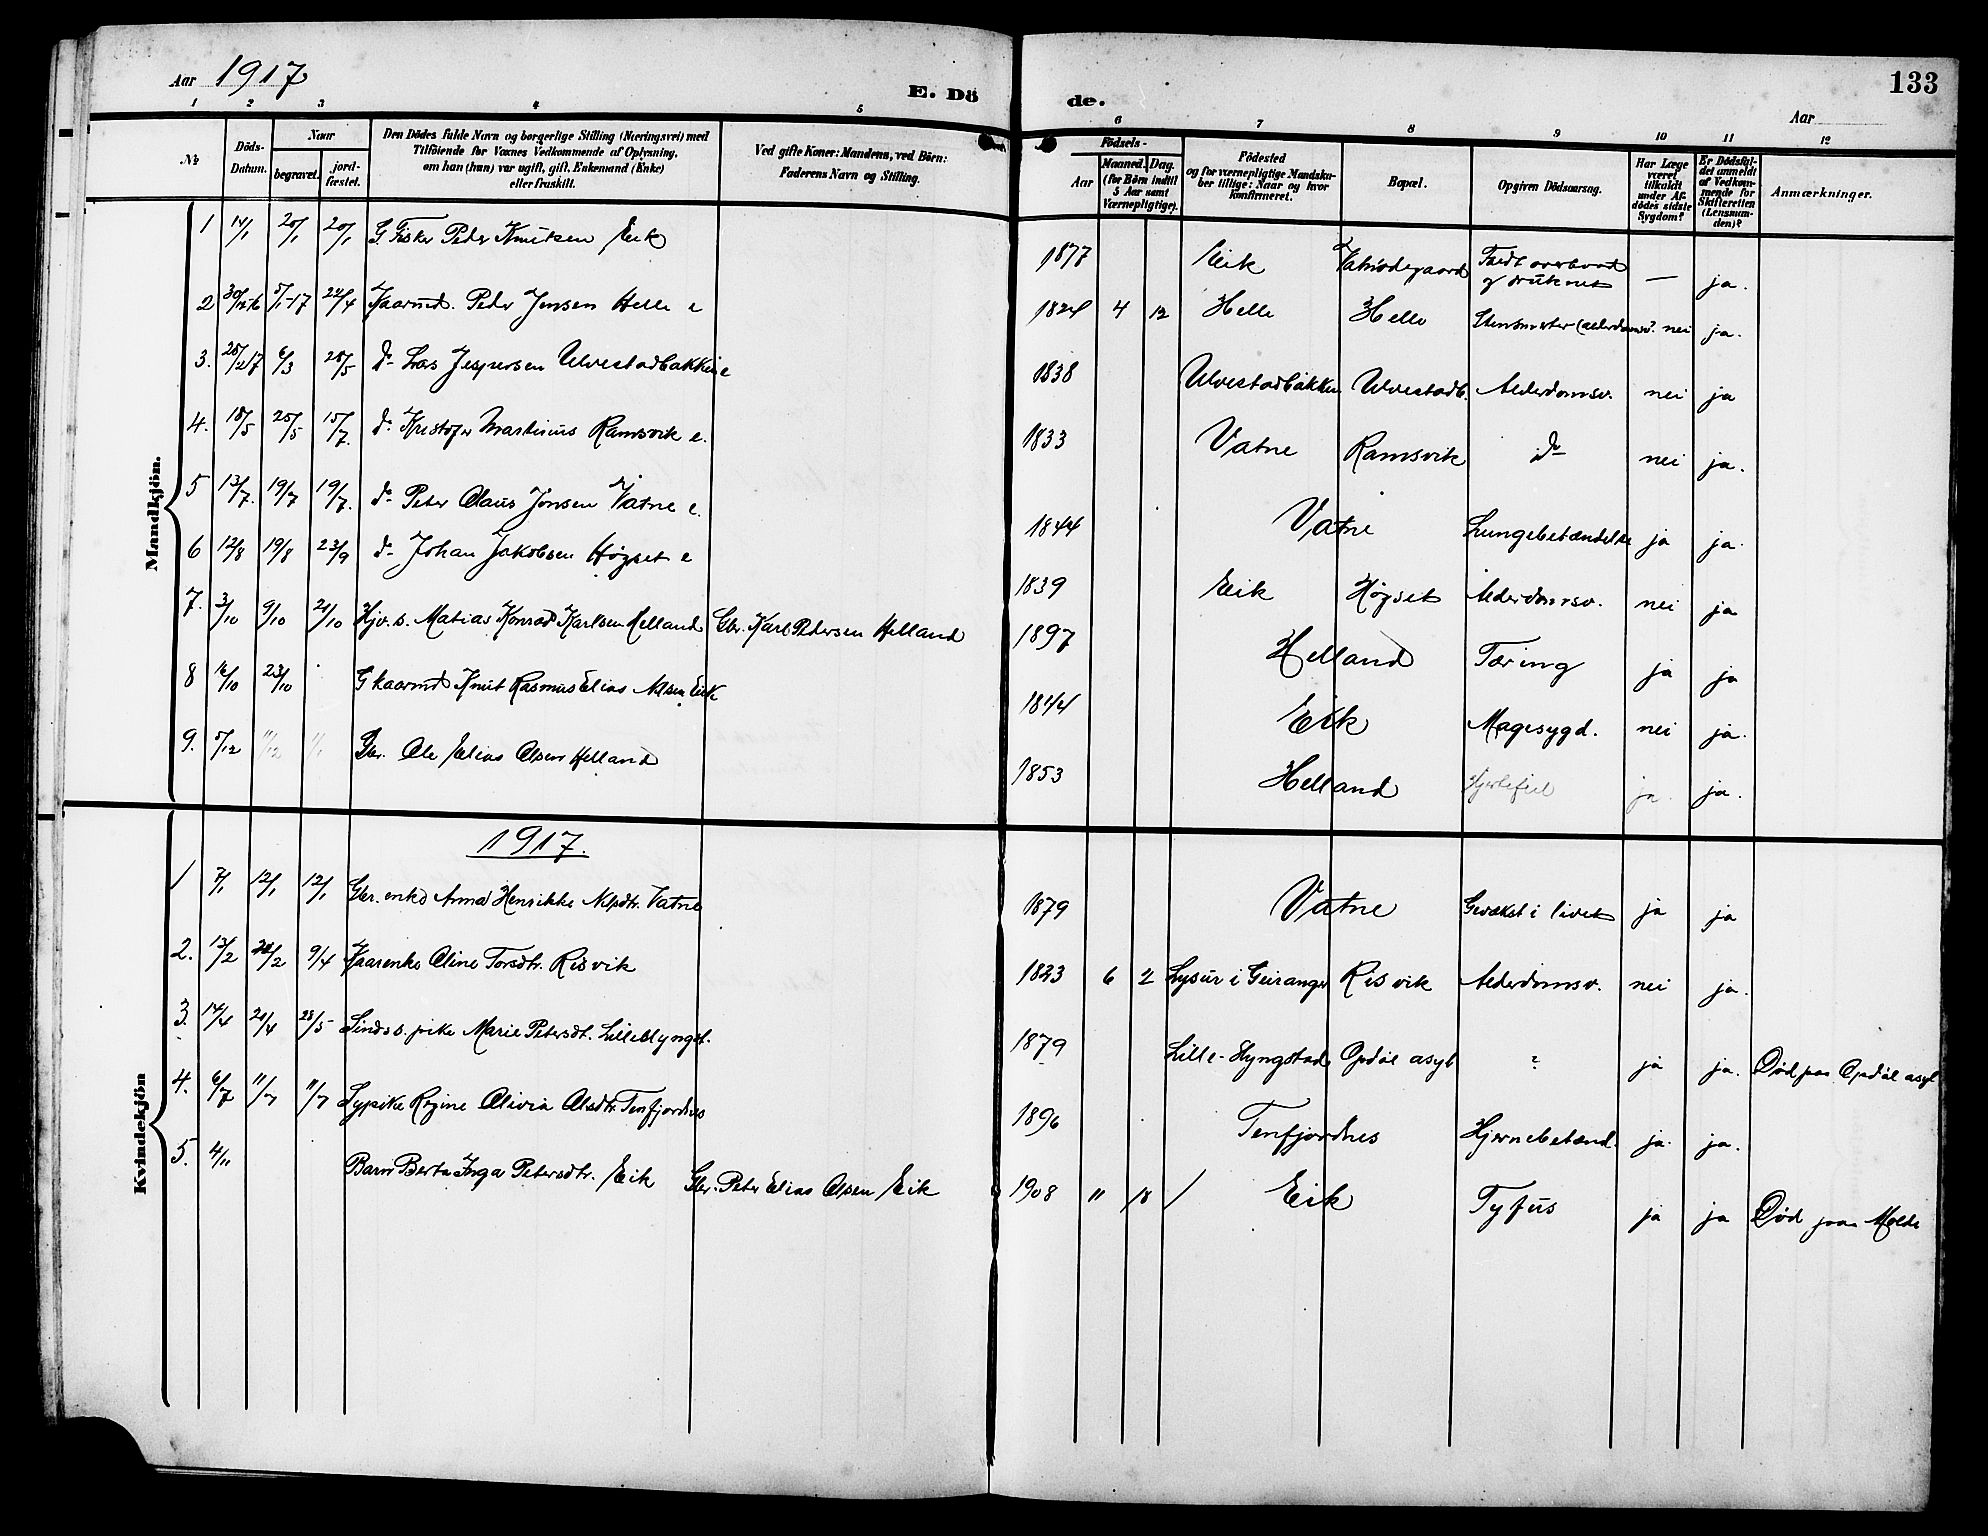 Aar 1917
E. Dö
de.
133
Aar
1 2 3 4 5
6 7 8 9 10 11 12
№
Döds-Datum.
Naar
begravet.
jord-fæstet.
Den Dödes fulde Navn og borgerlige Stilling (Næringsvei) med
Tilföiende for Voxnes Vedkommende af Oplysning,
om han (hun) var ugift, gift, Enkemand (Enke)
eller fraskilt.
Ved gifte Koner: Mandens, ved Börn:
Faderens Navn og Stilling.
Födsels-
Aar
Maaned. Dag.
(for Börn indtil
5 Aar samt
Værnepligtige).
Födested
og for værnepligtige Mandska-
ber tillige: Naar og hvor
konfirmeret.
Bopæl.
Opgiven Dödsaarsag.
Har Læge
været
tilkaldt
under Af-
dödes sidste
Sygdom?
Er Dödsfal-
det anmeldt
af Vedkom-
mende for
Skifteretten
(Lensman-
den)?
Anmærkninger.
Mandkjön.
1 14/1 20/1 20/1 G. Fisker Peder Knutsen Eik 1877 Eik Vatneødegaard Faldt overbord og druknet — ja.
2 30/12-16 5/1-17 22/4 Kaarmd. Peder Jensen Helle e 1824 4 12 Helle Helle nei ja.
3. 28/2 17 6/3 28/5 do Lars Jespersen Ulvestadbakken e 1838 Ulvestadbakken Ulvestadb. Alderdomsv. nei ja
4. 18/5 25/5 15/7. do Kristofer Martinus Ramsvik e. 1833 Vatne Ramsvik do nei ja.
5 13/7. 19/7 19/7. do Peter Olaus Jonsen Vatne e. 1844 Vatne Lungebetændelse ja ja.
6 12/8 19/8 23/9 do Johan Jakobsen Høgset e 1839 Eik Høgset Alderdomsv. nei ja
7. 3/10 9/10 21/10 Hjv. s. Matias Konrad Karlsen Helland Gbr. Karl Pedersen Helland 1897 Helland Tæring ja ja
8 16/10 23/10 G kaarmd Knut Rasmus Elias Nilsen Eik 1844 Eik Magesygd. nei ja.
9. 5/12 11/12 1/1 Gbr. Ole Elias Olsen Helland 1853 Helland Hjertefeil ja. ja.
1917.
Kvindekjön
1 7/1 12/1 12/1 Gbr. enke Anna Henrikke Nilsdtr. Vatne 1879 Vatne Gevækst i livet ja ja
2. 13/2 20/2 9/4 Kaarenke Oline Torsdtr. Risvik 1823 6 2 Lysur i Geiranger Risvik Alderdomsv. nei ja.
3. 14/4 21/4 28/5 Sindss. pike Marie Petersdt. Lilleslyngst. 1879 Lille-Slyngstad Opdøl asyl ? ja ja. Død paa Opdøl asyl
4. 6/7 11/7 11/7 Sypike Regine Olivia Olsdtr. Tenfjordnes 1896 Tenfjordnes Hjernebetænd. ja. ja.
5. 4/11 Barn Berta Inga Petersdtr. Eik Gbr. Peter Elias Olsen Eik 1908 11 18 / Eik Tyfus ja ja Død paa Molde